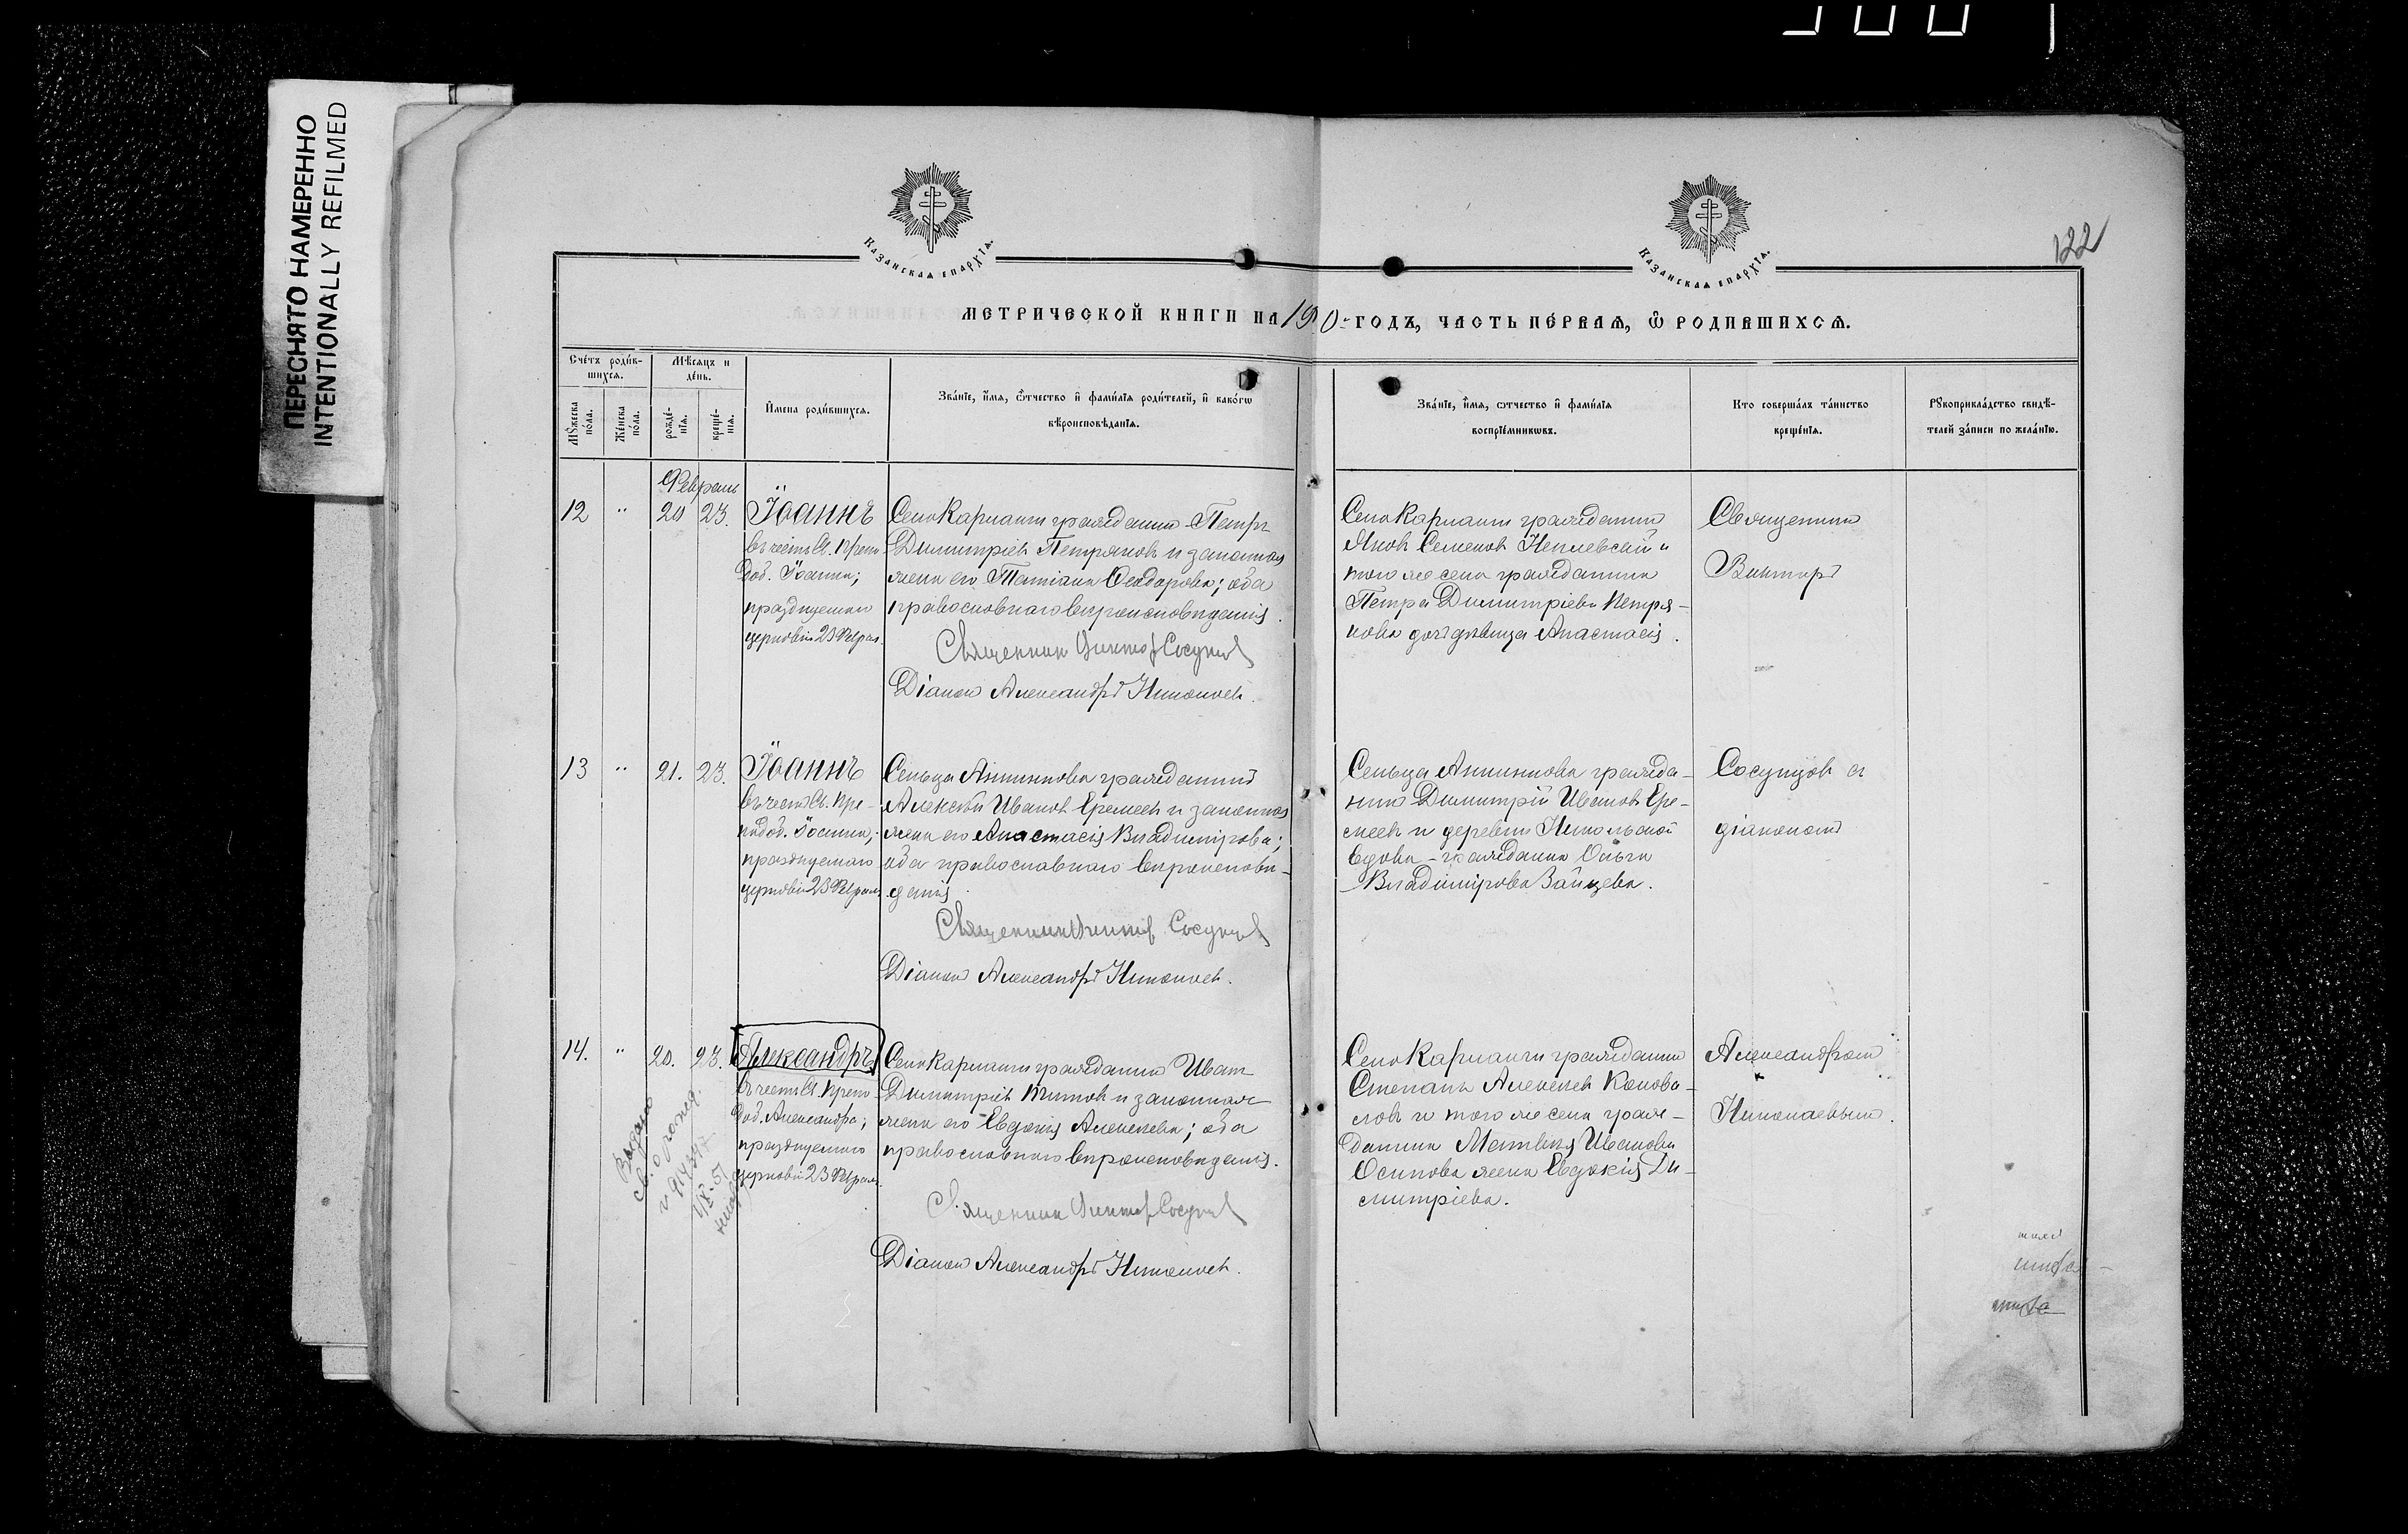 ПЕРЕСНЯТО НАМЕРЕННО
INTENTIONALLY REFILMED
122
Казанская епархїѧ.
Казанская епархїѧ.
МЕТРИЧЕСКОЙ КНИГИ НА 19 0 ГОДЪ, ЧАСТЬ ПЕРВАЯ, Ѿ РОДИВШИХСѦ.
Счётъ роди́в-
шихсѧ.
Мѣ́сяцъ и
де́нь.
Мꙋ́жеска
по́ла.
Же́нска
по́ла.
рожде́-
нїѧ.
креще́-
нїѧ.
И҆мена роди́вшихсѧ.
Зва́нїе, и҆́мѧ, ѻ҆́тчество и҆ фами́лїѧ роди́телей, и҆ како́гѡ
вѣроисповѣ́данїѧ.
Зва́нїе, и҆́мѧ, ѻ҆тчество и҆ фами́лїѧ
воспрїе́мникѡвъ.
Кто соверша́лъ та́инство
креще́нїѧ.
Рꙋкоприкла́дство свидѣ́-
телей за́писи по жела́нїю.
Февраль
12 " 20 23. Іоаннъ
въ честь Св. Преп
Іоанна;
празднуемаго
церковію 23 Феврал.
Село Кармалы гражданинъ Петръ
Димитріевъ Петряковъ и законная
жена его Татіана Ѳеодорова; оба
православнаго вѣроисповѣданія.
Священник Виктор Сосунцов
Діаконъ Александръ Николаевъ.
Село Кармалы гражданинъ
Яковъ Семеновъ и
того же села гражданина
Петра Димитріева Петря-
кова дочь дѣвица Анастасія.
Священникъ
Викторъ
13 " 21. 23. Іоаннъ
въ честь Св. Пре-
подоб. Іоанна;
празднуемаго
церковію 23 Феврал.
Сельца гражданинъ
Алексѣй Ивановъ Еремеевъ и законная
жена его Анастасія Владимірова;
оба православнаго вѣроисповѣ-
данія.
Священник Виктор Сосунцов
Діаконъ Александръ Николаевъ.
Сельца гражда-
нинъ Димитрій Ивановъ Ере-
меевъ и деревни Никольской
вдова-гражданка Ольга
Владимірова Зайцева.
Сосунцовъ съ
діакономъ
14. " 20. 23. Александръ
въ честь Св. Преп
доб. Александра;
празднуемаго
церковію 23 Феврал.
Село Кармалы гражданинъ Иванъ
Димитріевъ Титовъ и законная
жена его Евдокія Алексѣева; оба
православнаго вѣроисповѣданія.
Священник Виктор Сосунцов
Діаконъ Александръ Николаевъ.
Село Кармалы гражданинъ
Степанъ Алексѣевъ Коново-
ловъ и того же села граж-
данина Матвѣя Иванова
Осипова жена Евдокія Ди-
митріева.
Александромъ
Николаевымъ.
Выдано
св. о рожд.